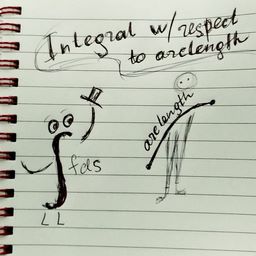 Integral w/respect
to arclength
∫ fds
arclength